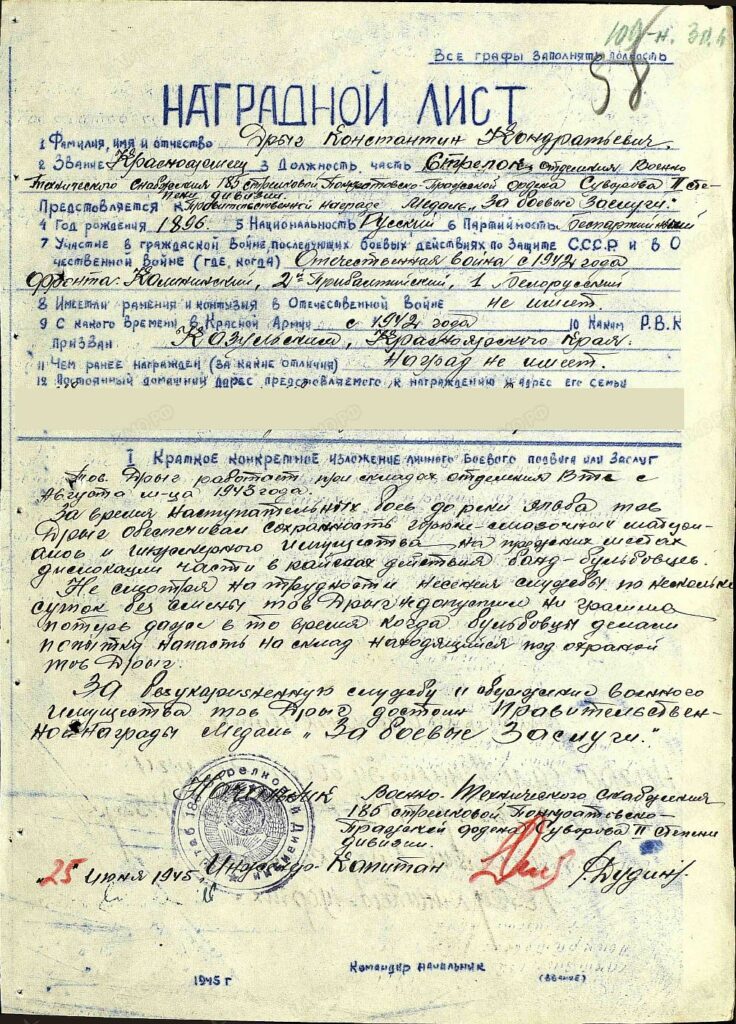 109-н. 30.6
58
Все графы заполнять полность
НАГРАДНОЙ ЛИСТ
1 Фамилия, имя и отчество Дрыг Константин Кондратьевич.
2 Звание Красноармеец 3 Должность, часть Стрелок отделения Военно
Технического Снабжения 185 стрелковой Панкратовско-Пражской ордена Суворова II Сте-
пени дивизии.
Представляется к Правительственной награде Медаль „За боевые Заслуги."
4 Год рождения 1896. 5 Национальность Русский 6 Партийность беспартийный
7 Участие в граждаской войне, последующих боевых действиях по Защите СССР и в О
чественной войне (где, когда) Отечественная война с 1942 года
фронта: Калининский, 2й Прибалтийский, 1 Белорусский
8 Имеетли ранения и контузия в Отечественной Войне не имеет.
9 С какого Времени в Красной Армии с 1942 года 10 Каким Р.В.К
призван Казульским, Красноярского Края.
11 Чем ранее награжден (за какие отличия) Наград не имеет.
12 Постоянный домашний адрес представляемого к награждению и адрес его семьи
I Краткое конкретное изложение личного боевого подвига или Заслуг
Тов. Дрыг работает при складах отделения ВТС с
Августа м-ца 1943 года.
За время наступательных боев до реки Эльба тов
Дрыг обеспечивал сохранность горюче-смазочных матери-
алов и инженерного имущества на прежних местах
дислокации части в районах действия банд-бульбовцев.
Не смотря на трудности несения службы по несколько
суток без смены тов Дрыг недопустил ни грамма
потерь даже в то время когда бульбовцы делали
попытки напасть на склад находящийся под охраной
тов Дрыг.
За безукоризненную службу и сбережение военного
имущества тов Дрыг достоин Правительствен-
ной награды Медаль „За боевые Заслуги."
Начальник Военно-Технического Снабжения
185 стрелковой Панкратовско-
Пражской ордена Суворова II Степени
дивизии.
„25" Июня 1945 Инженер-Капитан /Дудин/.
Командир начальник
1945 г (звание)